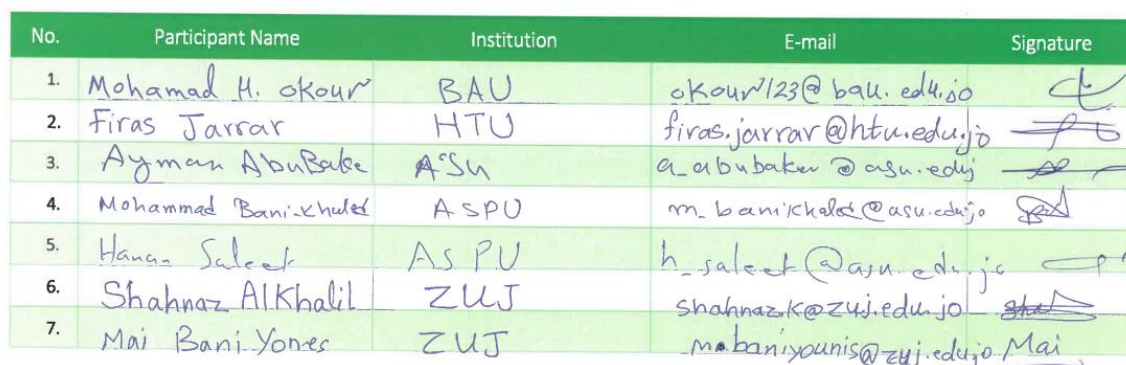 No. Participant Name Institution E-mail Signature
1. Mohamad H. Okour BAU okour123@bau.edu.jo
2. Firas Jarrar HTU firas.jarrar@htu.edu.jo
3. Ayman AbuBake ASU a_abubaker@asu.eduj
4. Mohammad Bani-Khaled ASPU m_banikhaled@asu.edu.jo
5. Hanan Saleet ASPU h_saleet@asu.edu.jo
6. Shahnaz AlKhalil ZUJ shahnaz.k@zuj.edu.jo
7. Mai Bani Yones ZUJ m.baniyounis@zuj.edu.jo Mai